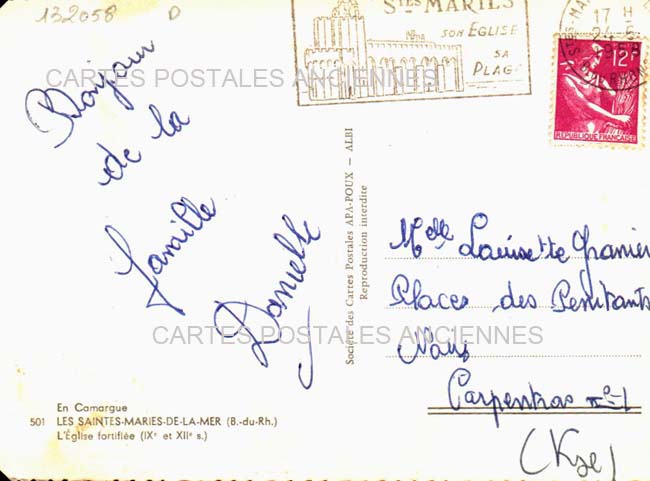 132058 D
STES MARIES
SON EGLISE
SA
PLAGE
17 H
24-5
12F
REPUBLIQUE FRANÇAISE
CARTES POSTALES ANCIENNES
Bonjour
de la
famille
Danielle
Société des Cartes Postales APA-POUX — ALBI
Reproduction interdite
Melle Louisette Granier
Places des Penitants
Carpentras
(Vse)
CARTES POSTALES ANCIENNES
En Camargue
501 LES SAINTES-MARIES-DE-LA-MER (B.-du-Rh.)
L'Église fortifiée (IXe et XIIe s.)